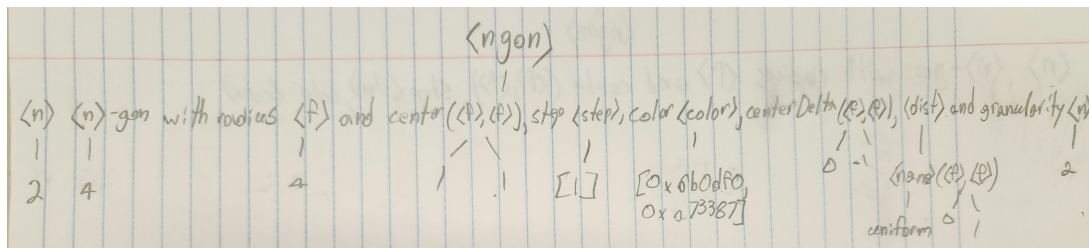 <ngon>
<n> <n>-gon with radius <f> and center(<f>, <f>), step <step>, color <color>, centerDelta(<f>, <f>), <dist> and granularity <n>
2 4 4 1 .1 [1] [0x6b0df0, 0 -1 <name>(<f>, <f>) 2
0xa73387]
uniform 0 1